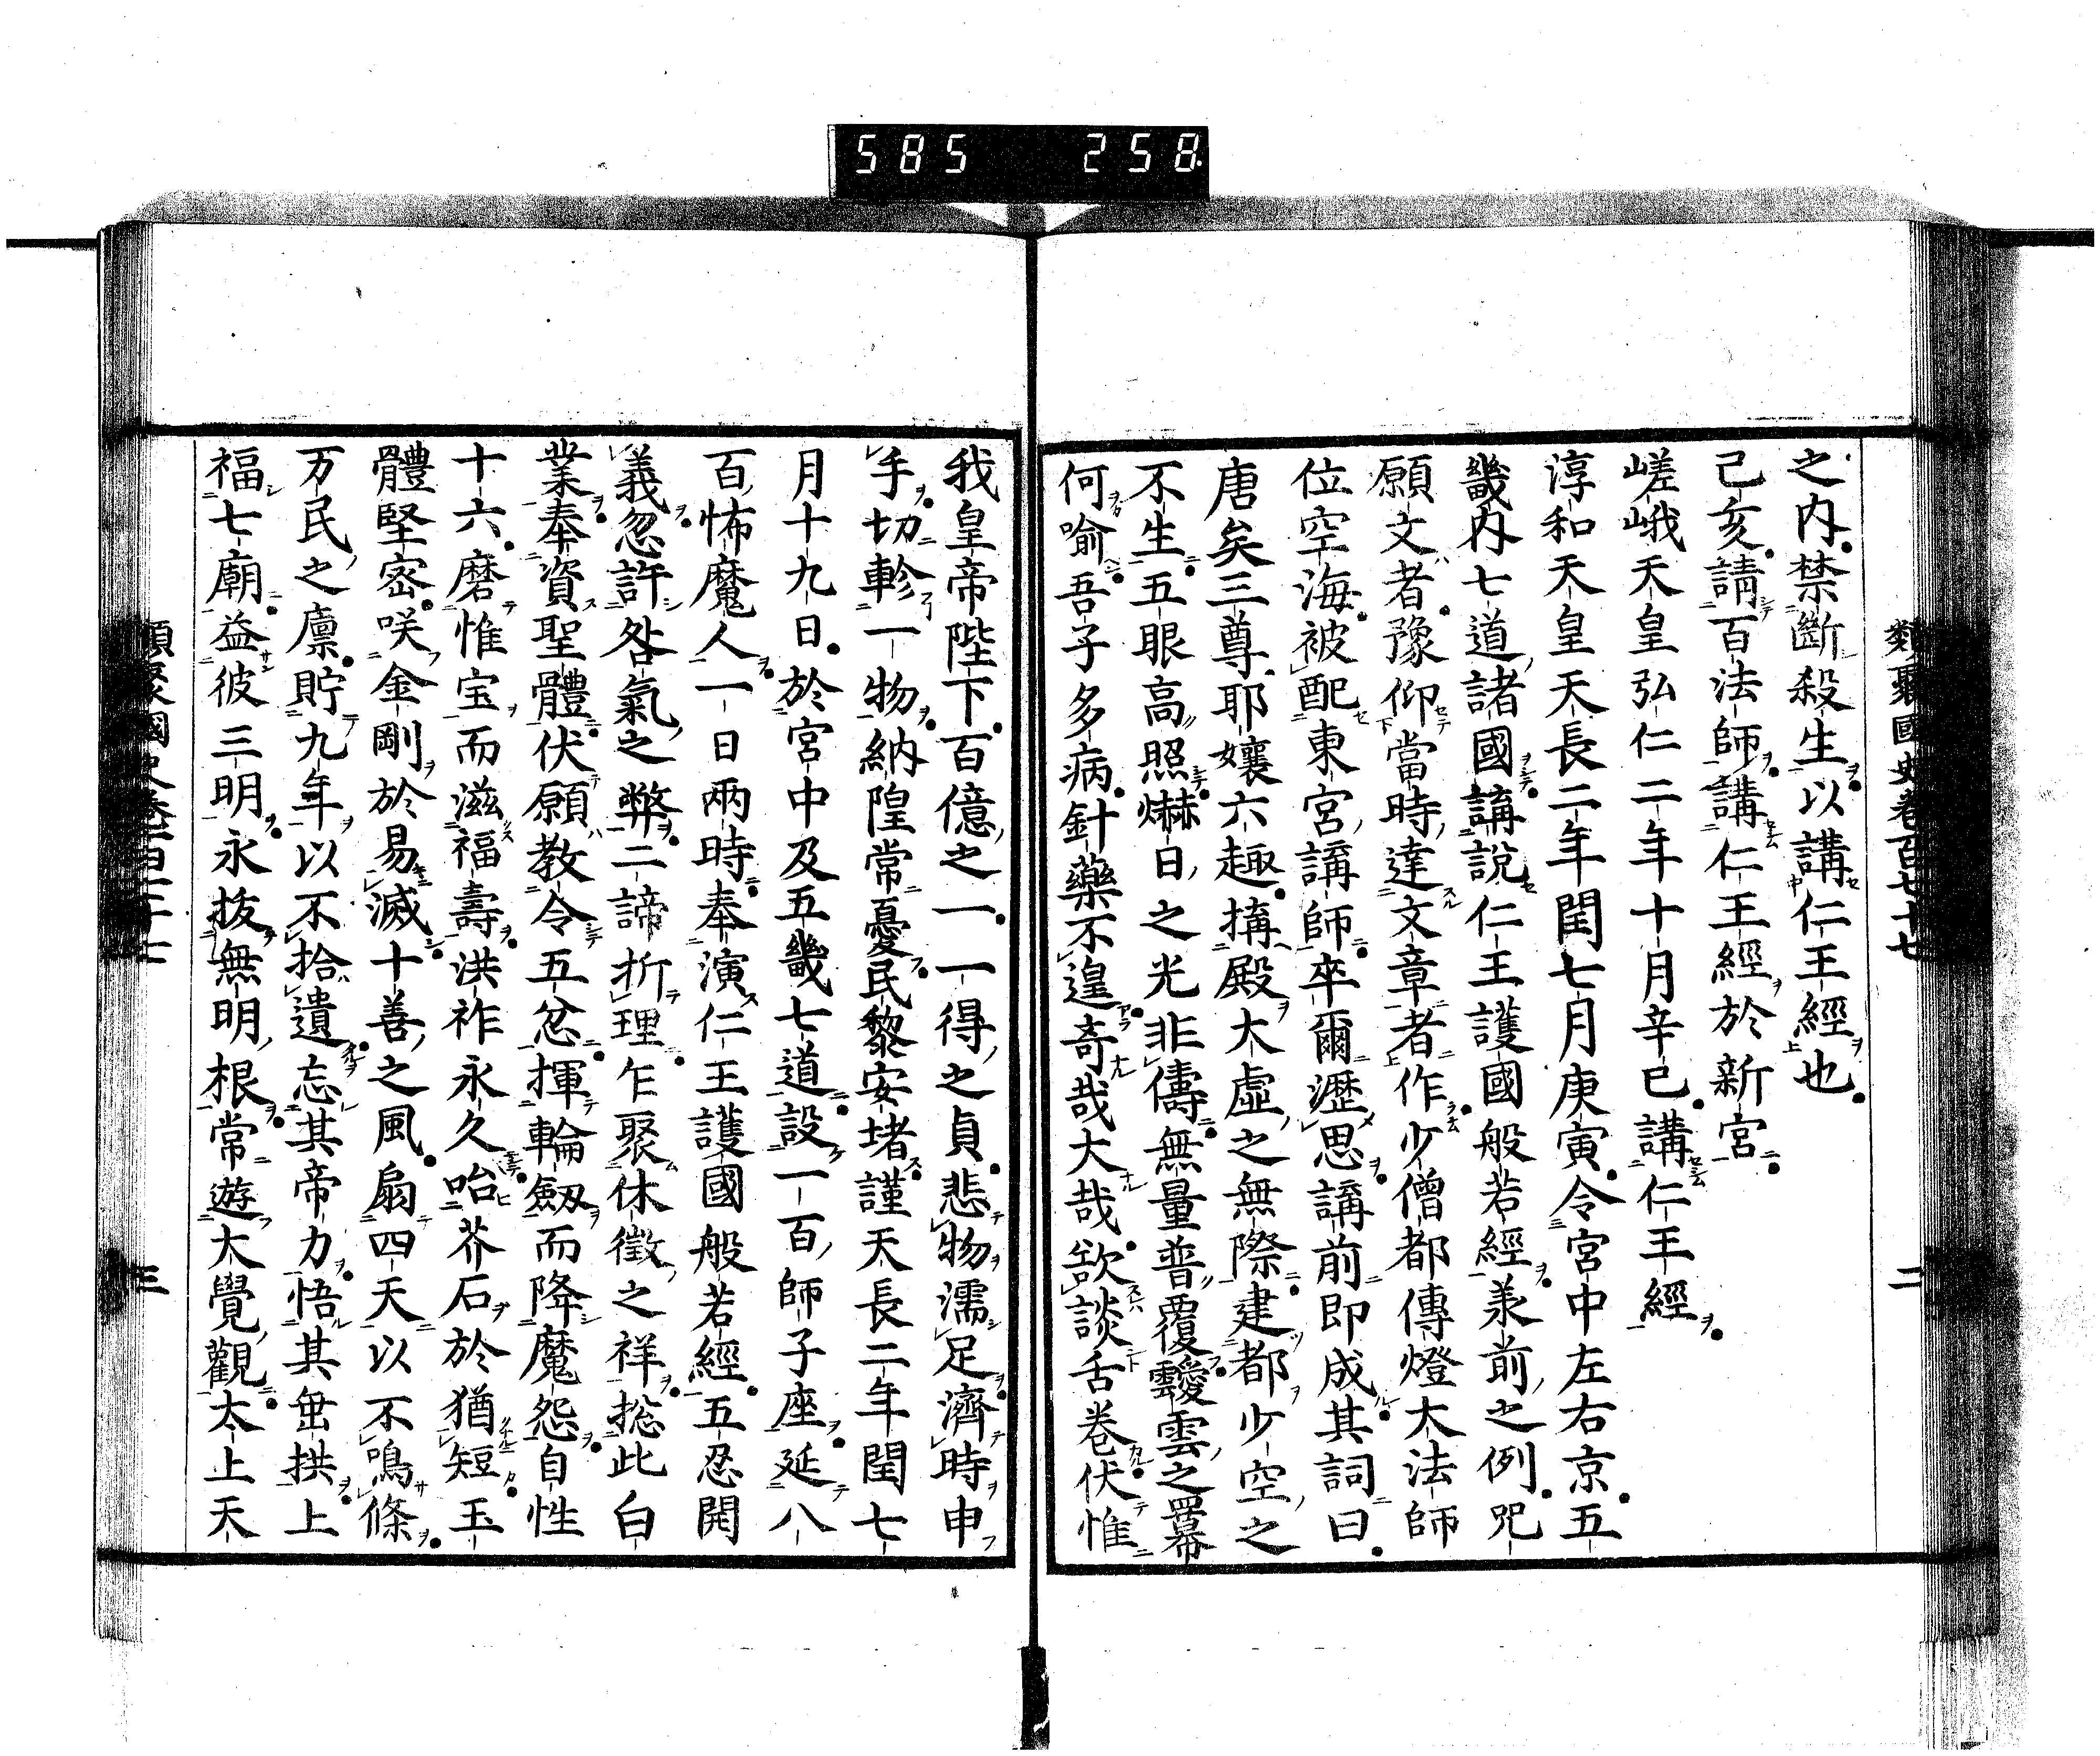 585 258
類聚國史卷百七十七 二
之内禁斷殺生以講仁王經也
己亥請百法師講仁王經於新宮
嵯峨天皇弘仁二年十月辛巳講仁王經
淳和天皇天長二年閏七月庚寅令宮中左右京五
畿内七道諸國講說仁王護國般若經羕前之例咒
願文者豫仰當時達文章者作少僧都傳燈大法師
位空海被配東宮講師卒爾瀝思講前即成其詞曰
唐矣三尊耶孃六趣搆殿大虛之無際建都少空之
不生五眼高照爀日之光非儔無量普覆靉雲之羃
何喻吾子多病針藥不遑奇哉大哉欲談舌卷伏惟
我皇帝陛下百億之一一得之貞悲物濡足濟時申
手切軫一物納隍常憂民黎安堵謹天長二年閏七
月十九日於宮中及五畿七道設一百師子座延八
百怖魔人一日兩時奉演仁王護國般若經五忍開
義忽許咎氣之弊二諦折理乍聚休徵之祥捴此白
業奉資聖體伏願教令五忿揮輪劔而降魔怨自性
十六磨惟宝而滋福壽洪祚永久咍芥石於猶短玉
體堅密咲金剛於易滅十善之風扇四天以不鳴條
万民之廩貯九年以不拾遺忘其帝力悟其毌拱上
福七廟益彼三明永拔無明根常遊大覺觀太上天
類聚國史卷百七十七 三